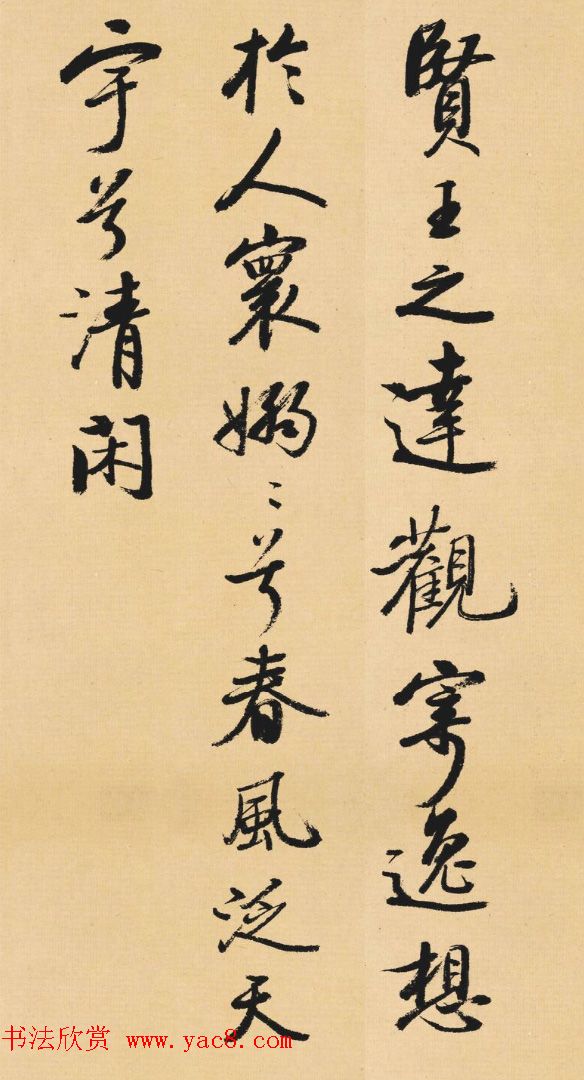 賢王之達觀寄逸想
於人寰嫋〻兮春風泛天
宇兮清閑
书法欣赏 www.yac8.com